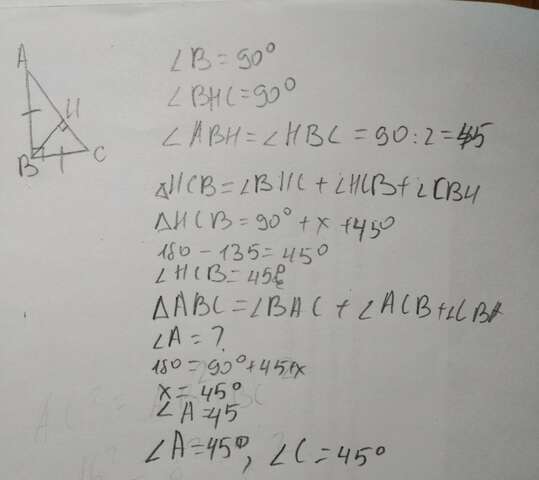 A
H
B
C
∠B = 90°
∠BHC = 90°
∠ABH = ∠HBC = 90 : 2 = 45
△HCB = ∠BHC + ∠HCB + ∠CBH
△HCB = 90° + x + 45°
180 - 135 = 45°
∠HCB = 45°
△ABC = ∠BAC + ∠ACB + ∠CBA
∠A = ?
180 = 90° + 45 + x
x = 45°
∠A = 45
∠A = 45°, ∠C = 45°